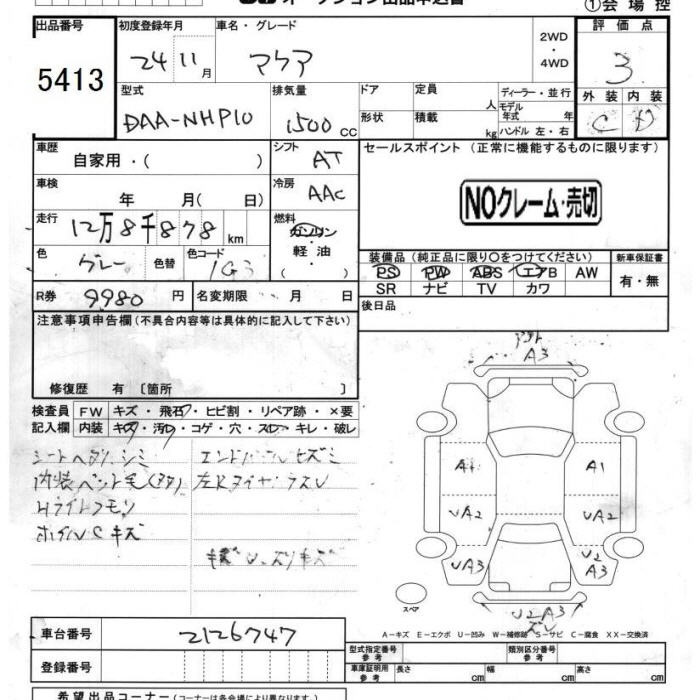 ①会場控
出品番号 初度登録年月 車名・グレード 2WD ・ 4WD 評価点
5413 24 11月 アクア 3
型式 排気量 ドア 定員 人 ディーラー・並行 外装 内装
DAA-NHP10 1500 CC 形状 積載 kg モデル年式 年 ハンドル 左・右 C D
車歴 自家用・( ) シフト AT セールスポイント (正常に機能するものに限ります)
車検 年 月( 日) 冷房 AAC NOクレーム・売切
走行 12万8千878 km 燃料 ガソリン
軽油
・( )
色 グレー 色替 色コード 1G3
装備品(純正品に限り○をつけてください) 新車保証書
PS PW ABS エアB AW 有・無
SR ナビ TV カワ
R券 9980 円 名変期限 月 日 後日品
注意事項申告欄(不具合内容等は具体的に記入して下さい)
修復歴 有 〔箇所 〕
検査員 FW キズ・飛石・ヒビ割・リペア跡・×要
記入欄 内装 キズ・汚レ・コゲ・穴・スレ・キレ・破レ
シートヘタリ、シミ
ホイルCキズ
A3
A1 A1
UA2 UA2
UA3 U2 A3
スペア
U2A3
ズレ
A-キズ E-エクボ U-凹み W-補修跡 S-サビ C-腐食 XX-交換済
車台番号 2126747
登録番号
型式指定番号 参考 類別区分番号 参考
車庫証明用 参考 長さ cm 幅 cm 高さ cm
希望出品コーナー(コーナーは各会場により異なります)